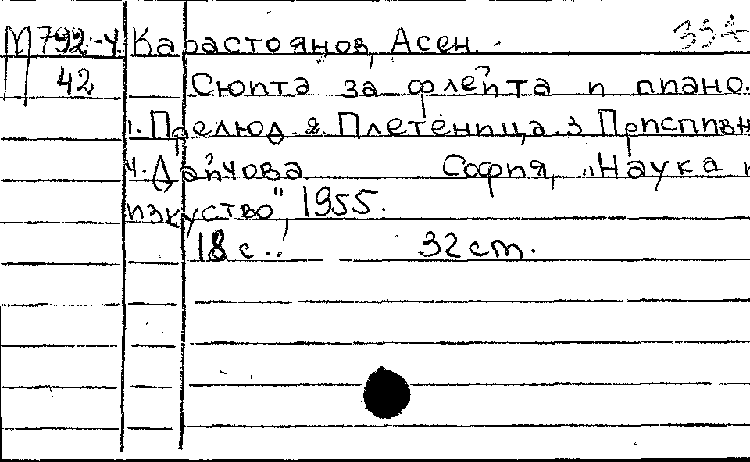 М 792-4 Карастоянов, Асен. 334
42 Сюита за флейта и пиано.
1. Прелюд 2. Плетеница. 3 Приспивн
4. Дайчова София, „Наука и
изкуство", 1955.
18 с. 32 cm.